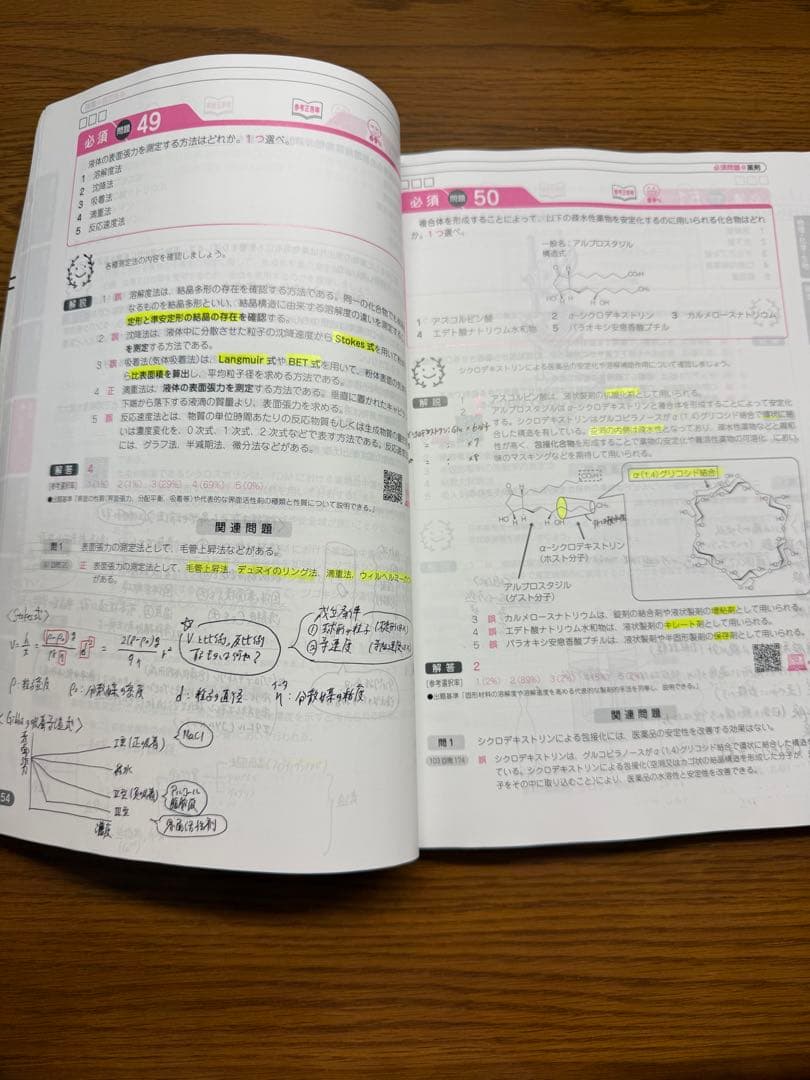 必須 問題 49
参考正答率
液体の表面張力を測定する方法はどれか。1つ選べ。
1 溶解度法
2 沈降法
3 吸着法
4 滴重法
5 反応速度法
各種測定法の内容を確認しましょう。
解説
1 誤 溶解度法は、結晶多形の存在を確認する方法である。同一の化合物でも
なるものを結晶多形といい、結晶構造に由来する溶解度の違いを測定する
定形と準安定形の結晶の存在を確認する。
2 誤 沈降法は、液体中に分散させた粒子の沈降速度から Stokes 式を用いて
を測定する方法である。
3 誤 吸着法(気体吸着法)は、Langmuir 式や BET 式を用いて、粉体表面の
ら比表面積を算出し、平均粒子径を求める方法である。
4 正 滴重法は、液体の表面張力を測定する方法である。垂直に置かれたキャピ
下端から落下する液滴の質量より、表面張力を求める。
5 誤 反応速度法とは、物質の単位時間あたりの反応物質もしくは生成物質の
いは濃度変化を、0 次式、1 次式、2 次式などで表す方法である。反応速度
には、グラフ法、半減期法、微分法などがある。
解答 4
[参考選択率] 1(3%) 2(1%) 3(29%) 4(69%) 5(0%)
関連問題
問1 表面張力の測定法として、毛管上昇法などがある。
正 表面張力の測定法として、毛管上昇法、デュヌイのリング法、滴重法、ウィルヘルミー
がある。
〈Stokes式〉
成立条件
① 球形の粒子
② 等速度
ρ:粒子密度 ρ₀:分散媒の密度 d:粒子の直径 η:分散媒の粘度
表面張力
Ⅰ型(正吸着)
NaCl
純水
Ⅱ型(負吸着)
アルコール
Ⅲ型
界面活性剤
濃度
54
必須問題 薬剤
必須 問題 50
複合体を形成することによって、以下の疎水性薬物を安定化するのに用いられる化合物はどれ
か。1つ選べ。
一般名:アルプロスタジル
構造式:
1 アスコルビン酸 2 α-シクロデキストリン 3 カルメロースナトリウム
4 エデト酸ナトリウム水和物 5 パラオキシ安息香酸ブチル
シクロデキストリンによる医薬品の安定化や溶解補助作用について確認しましょう。
解説
1 誤 アスコルビン酸は、液状製剤の抗酸化剤として用いられる。
2 正 アルプロスタジルは α-シクロデキストリンと複合体を形成することによって安定
化する。シクロデキストリンはグルコピラノースが α(1,4)グリコシド結合で環状に結
合した構造を有している。空洞の内側は疎水性となっており、疎水性薬物などと親和
性が高く、包接化合物を形成することで薬物の安定化や難溶性薬物の可溶化、におい
味のマスキングなどを期待して用いられる。
α(1,4)グリコシド結合
α-シクロデキストリン
(ホスト分子)
アルプロスタジル
(ゲスト分子)
3 誤 カルメロースナトリウムは、錠剤の結合剤や液状製剤の増粘剤として用いられる。
4 誤 エデト酸ナトリウム水和物は、液状製剤のキレート剤として用いられる。
5 誤 パラオキシ安息香酸ブチルは、液状製剤や半固形製剤の保存剤として用いられる。
解答 2
[参考選択率] 1(2%) 2(89%) 3(2%) 4(5%) 5(2%)
●出題基準「固形材料の溶解度や溶解速度を高める代表的な製剤的手法を列挙し、説明できる。」
関連問題
問1 シクロデキストリンによる包接化には、医薬品の安定性を改善する効果はない。
誤 シクロデキストリンは、グルコピラノースが α(1,4)グリコシド結合で環状に結合した構造
ている。シクロデキストリンによる包接化(空洞又はカゴ状の結晶構造を形成した分子が、
子をその中に取り込むこと)により、医薬品の水溶性と安定性を改善できる。